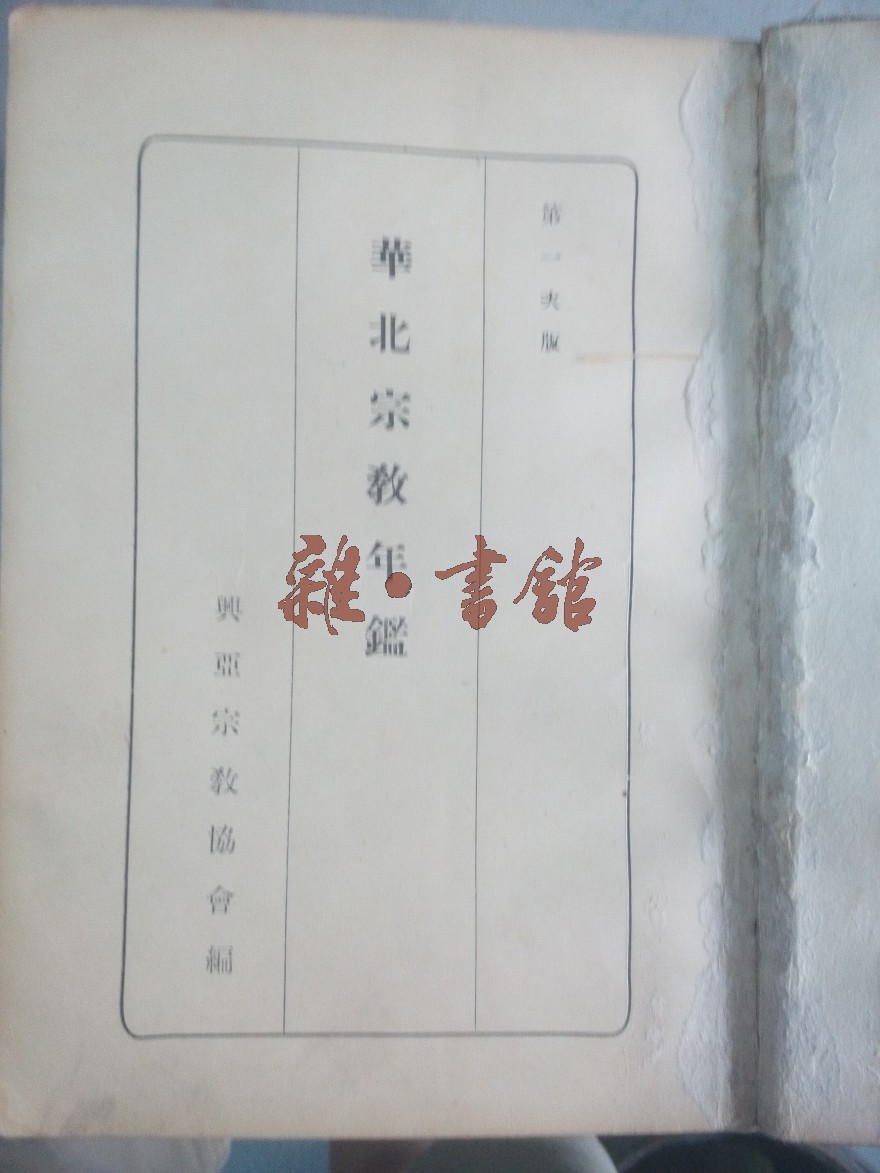 第一次版
華北宗教年鑑
興亞宗教協會編
雜·書館